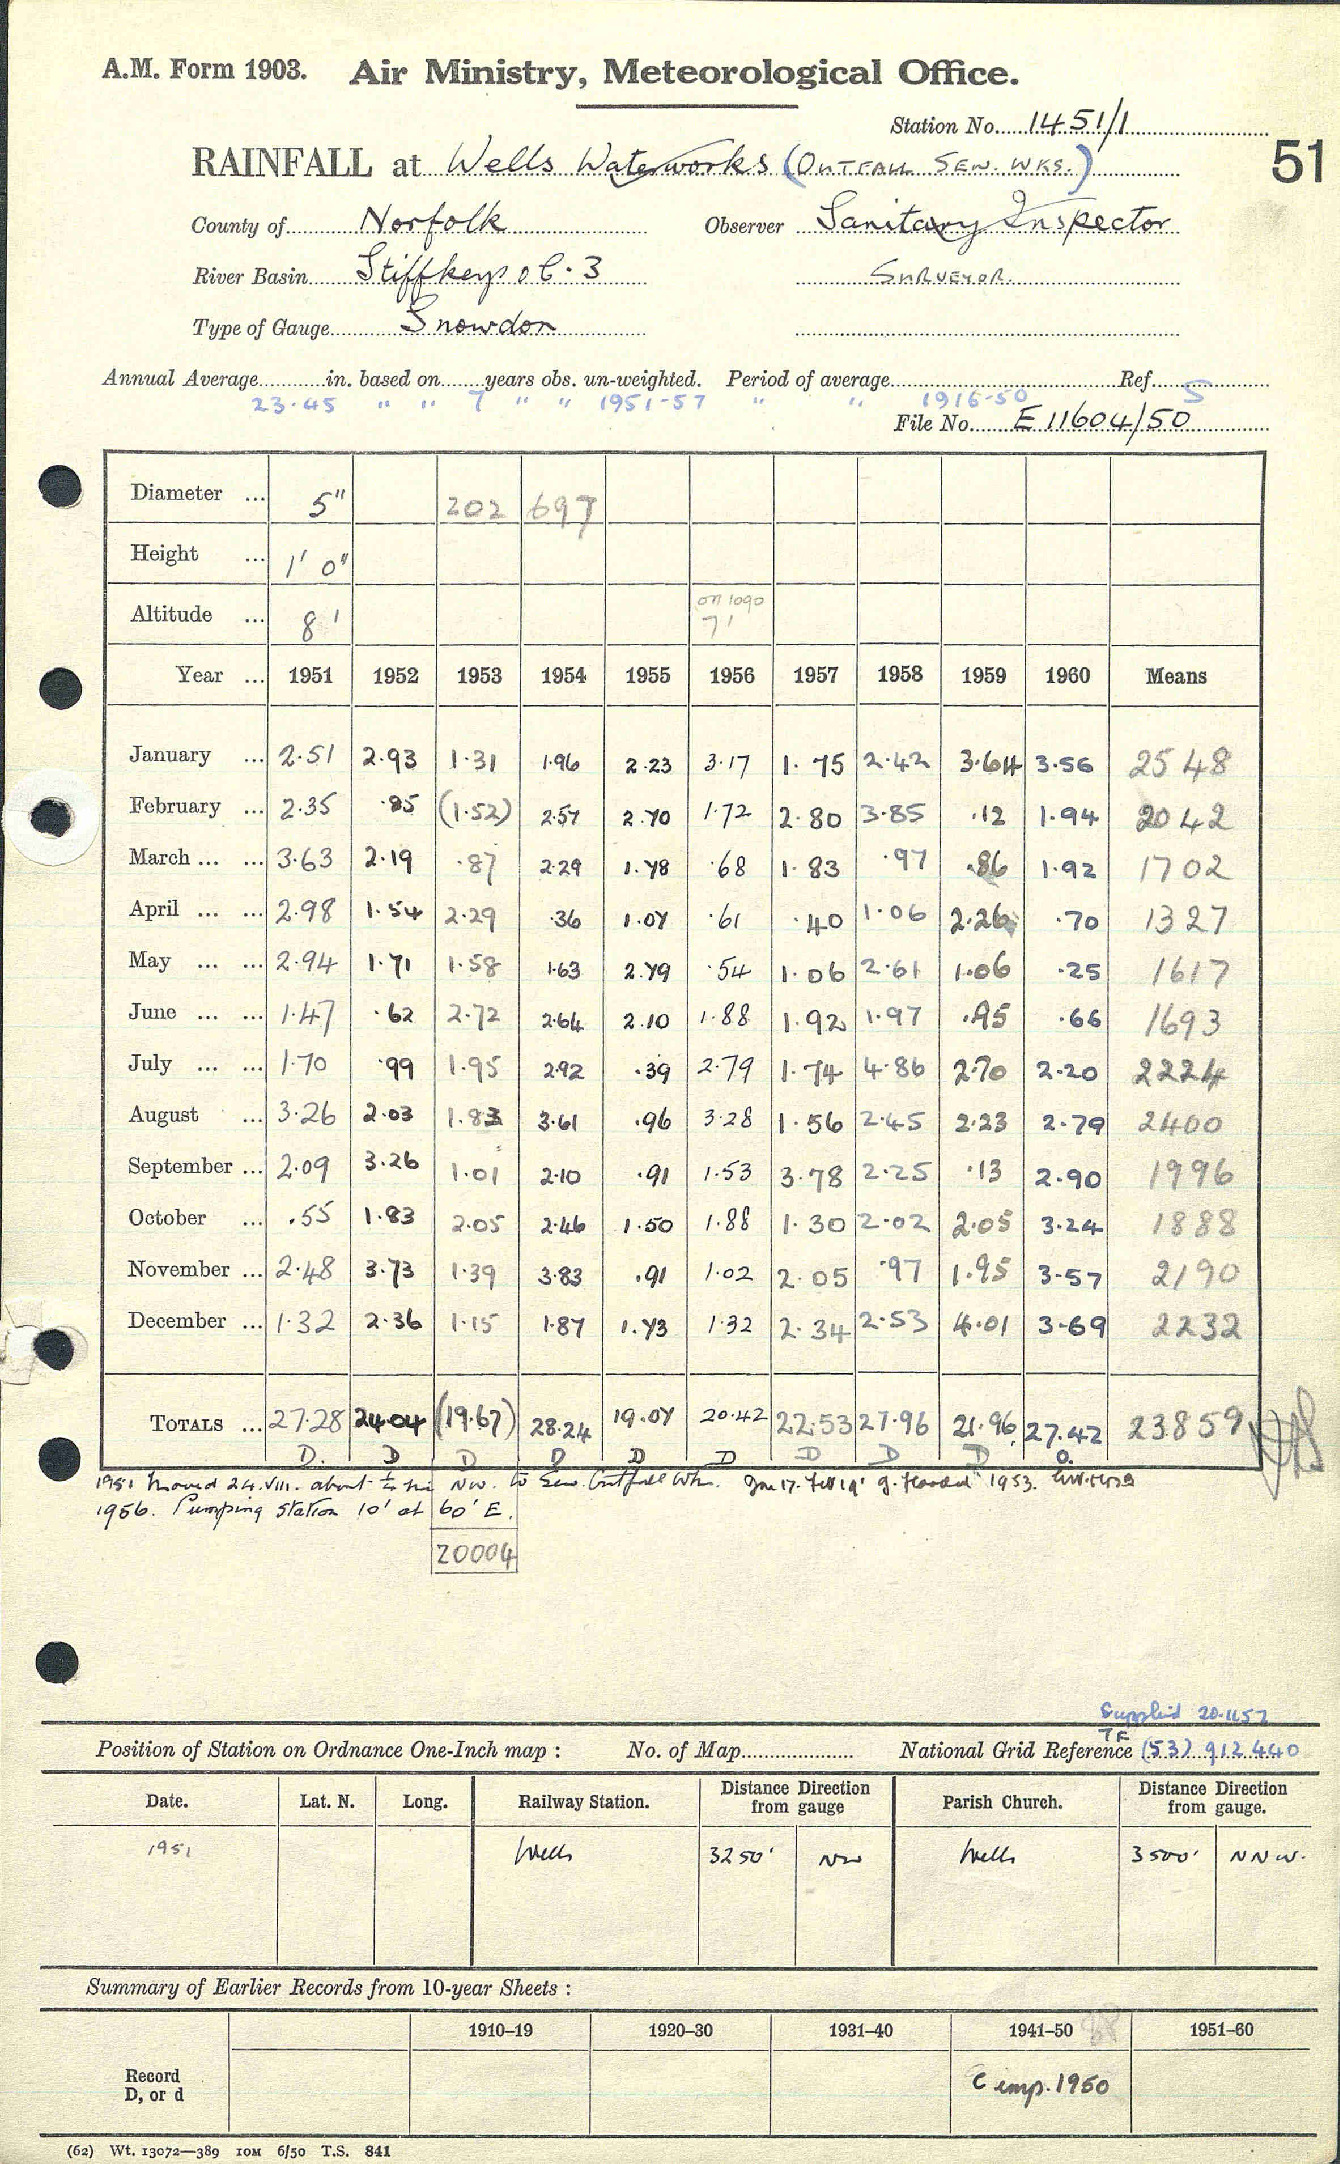 A.M. Form 1903. Air Ministry, Meteorological Office.
Station No. 1451/1
RAINFALL at Wells Waterworks (OUTFALL SEW. WKS.)
51
County of Norfolk Observer Sanitary Inspector
River Basin Stiffkey &c. 3 SURVEYOR.
Type of Gauge Snowdon
Annual Average in. based on years obs. un-weighted. Period of average Ref. S
23.45 " " 7 " " 1951-57 " " 1916-50
File No. E 11604/50
Diameter ... 5" 202 697
Height ... 1' 0"
Altitude ... 8' on 1090 7'
Year ... 1951 1952 1953 1954 1955 1956 1957 1958 1959 1960 Means
January ... 2.51 2.93 1.31 1.96 2.23 3.17 1.75 2.42 3.64 3.56 2548
February ... 2.35 .85 (1.52) 2.57 2.70 1.72 2.80 3.85 .12 1.94 2042
March ... ... 3.63 2.19 .87 2.29 1.78 .68 1.83 .97 .86 1.92 1702
April ... ... 2.98 1.54 2.29 .36 1.07 .61 .40 1.06 2.26 .70 1327
May ... ... 2.94 1.71 1.58 1.63 2.79 .54 1.06 2.61 1.06 .25 1617
June ... ... 1.47 .62 2.72 2.64 2.10 1.88 1.92 1.97 .95 .66 1693
July ... ... 1.70 .99 1.95 2.92 .39 2.79 1.74 4.86 2.70 2.20 2224
August ... 3.26 2.03 1.83 3.61 .96 3.28 1.56 2.45 2.23 2.79 2400
September ... 2.09 3.26 1.01 2.10 .91 1.53 3.78 2.25 .13 2.90 1996
October ... .55 1.83 2.05 2.46 1.50 1.88 1.30 2.02 2.05 3.24 1888
November ... 2.48 3.73 1.39 3.83 .91 1.02 2.05 .97 1.95 3.57 2190
December ... 1.32 2.36 1.15 1.87 1.73 1.32 2.34 2.53 4.01 3.69 2232
TOTALS ... 27.28 24.04 (19.67) 28.24 19.07 20.42 22.53 27.96 21.96 27.42 23859
D. D D D D D D D D D.
1951 Moved 24.VIII. about ½ mi NW. to Sew. Outfall Wks. 1953.
1956. Pumping Station 10' at 60' E.
20004
Supplied 20.11.57
TF
Position of Station on Ordnance One-Inch map : No. of Map National Grid Reference (53) 912 440
Date. Lat. N. Long. Railway Station. Distance Direction from gauge Parish Church. Distance Direction from gauge.
1951 Wells 3250' NW Wells 3500' NNW.
Summary of Earlier Records from 10-year Sheets :
1910–19 1920–30 1931–40 1941–50 1951–60
Record D, or d C emp. 1950
(62) Wt. 13072—389 IOM 6/50 T.S. 841